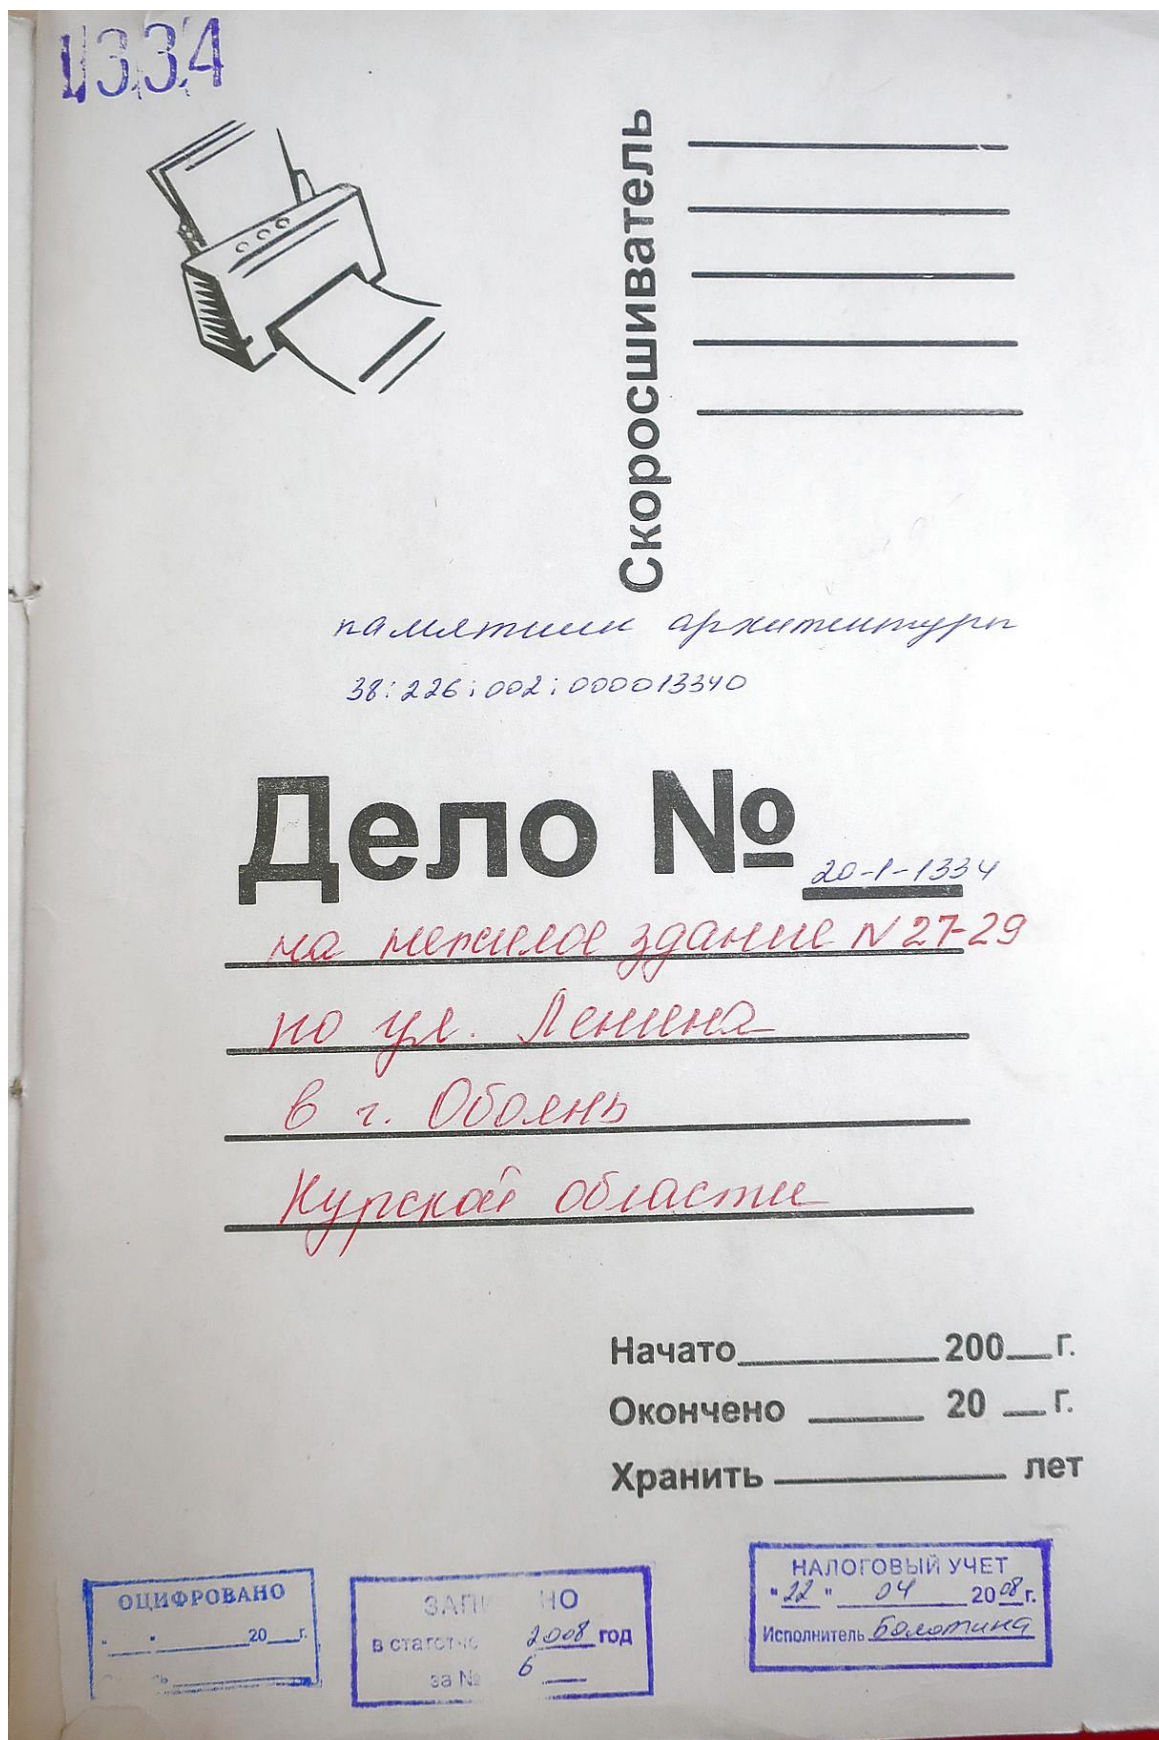 1334
Скоросшиватель
памятник архитектуры
38:226:002:000013340
Дело № 20-1-1334
на нежилое здание N 27-29
по ул. Ленина
в г. Обоянь
Курской области
Начато 200 г.
Окончено 20 г.
Хранить лет
ОЦИФРОВАНО
" " 20 г.
в статотчет 2008 год
за № 6
НАЛОГОВЫЙ УЧЕТ
"22" 04 2008 г.
Исполнитель Болотина